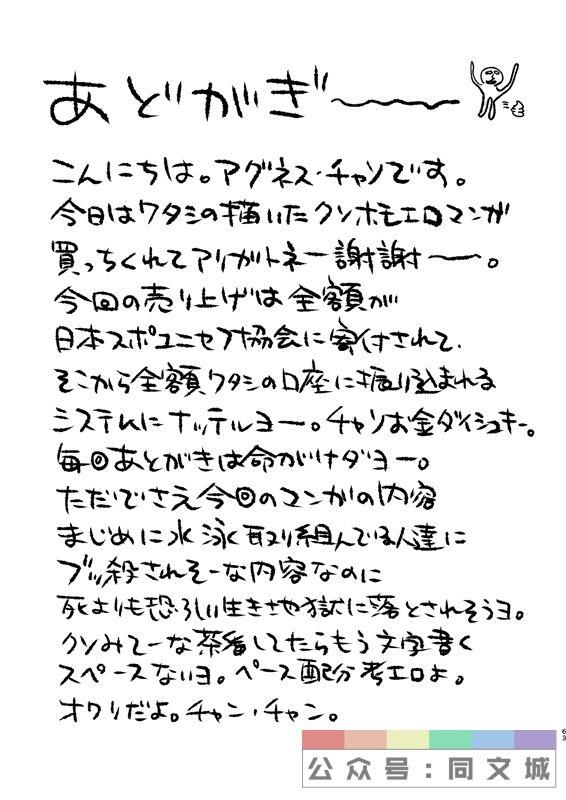 あどがぎ〜
こんにちは。アグネス・チャソです。
今日はワタシの描いたクソホモエロマンガ
買っちくれてアリガトネー謝謝ー。
今回の売り上げは全額が
日本スポユニセフ協会に寄付されて、
そこから全額ワタシの口座に振り込まれる
システムにナッテルヨー。チャソお金ダイシュキー。
毎回あとがきは命がけダヨー。
ただでさえ今回のマンガの内容
まじめに水泳取り組んでいる人達に
ブッ殺されそーな内容なのに
死よりも恐ろしい生き地獄に落とされそうヨ。
クソみてーな茶番してたらもう文字書く
スペースないヨ。ペース配分考エロよ。
オワリだよ。チャン・チャン。
63
公众号:同文城